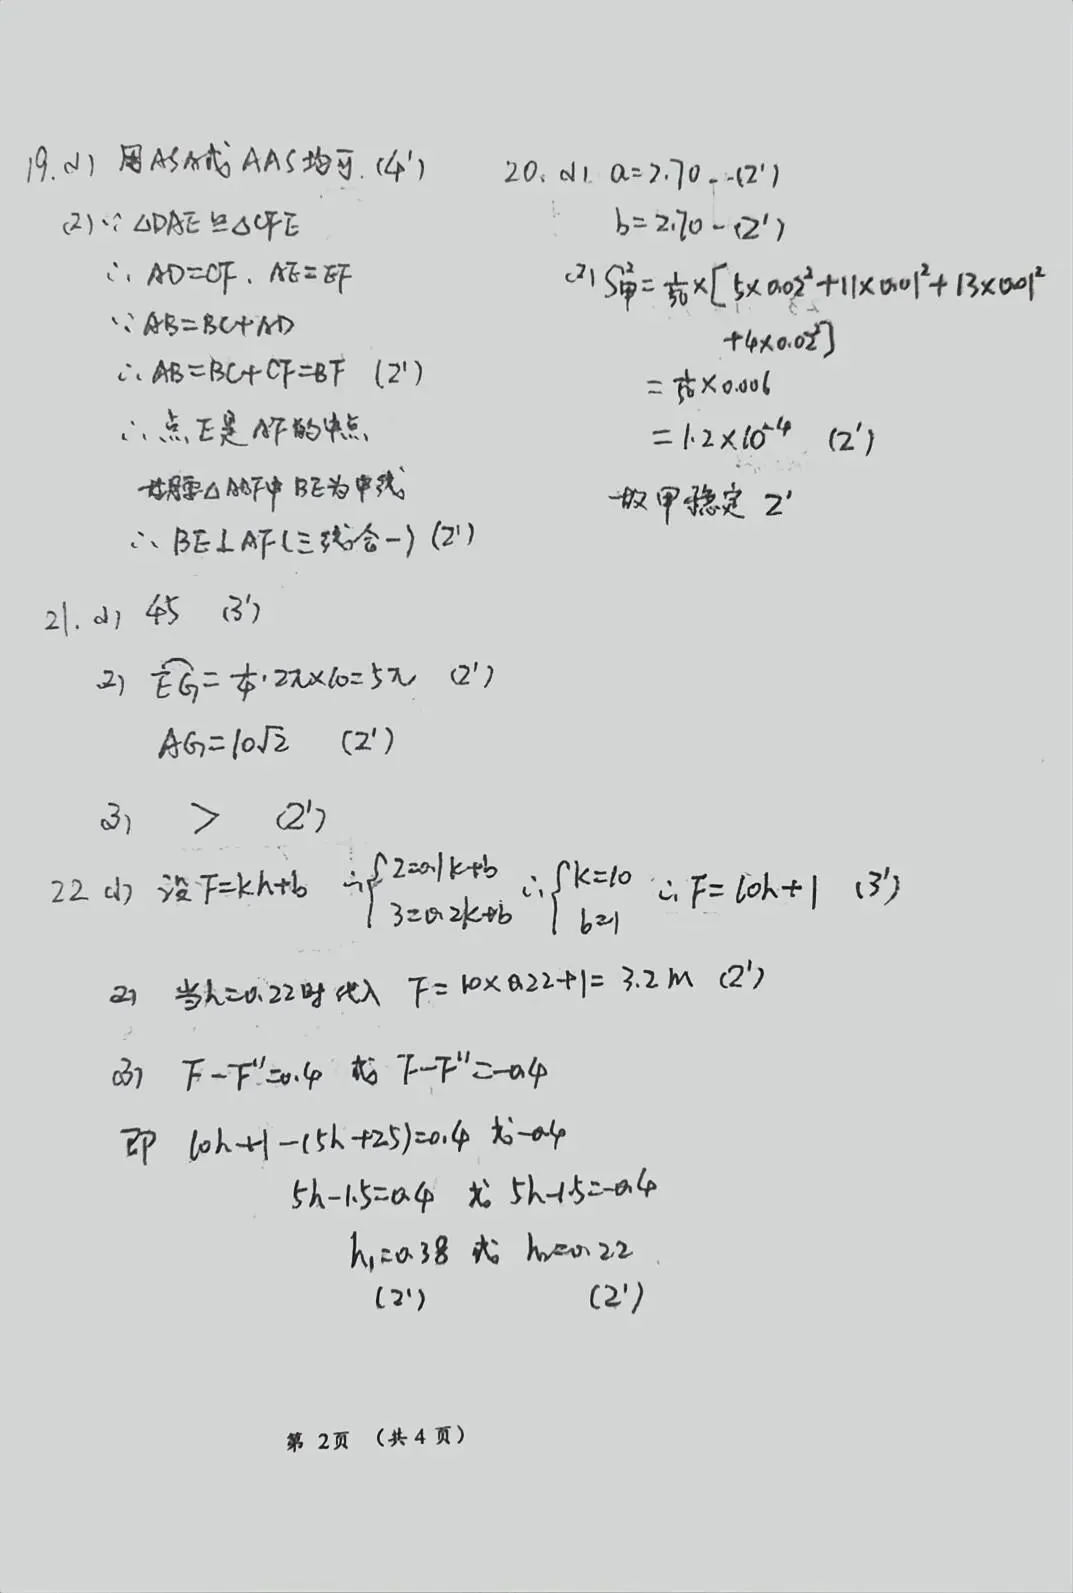 19.(1) 用ASA或AAS均可.(4')
(2)∵△DAE≌△CFE
∴AD=CF.AE=EF
∵AB=BC+AD
∴AB=BC+CF=BF (2')
∴点E是AF的中点
△ABF中BE为中线
∴BE⊥AF(三线合一) (2')
20.(1) a=2.70--(2')
b=2.70-(2')
(2) S甲²=1/50×[5×0.02²+11×0.01²+13×0.01²
+4×0.02²]
=1/50×0.006
=1.2×10⁻⁴ (2')
故甲稳定 2'
21.(1) 45 (3')
2) EG=1/4·2π×10=5π (2')
AG=10√2 (2')
3) > (2')
22 (1) 设F=kh+b ∴{2=0.1k+b 3=0.2k+b ∴{k=10 b=1 ∴F=10h+1 (3')
2) 当h=0.22时代入 F=10×0.22+1=3.2m (2')
3) F-F''=0.4 或 F-F''=-0.4
即 10h+1-(5h+2.5)=0.4 或-0.4
5h-1.5=0.4 或 5h-1.5=-0.4
h₁=0.38 或 h₂=0.22
(2') (2')
第 2页 (共 4 页)